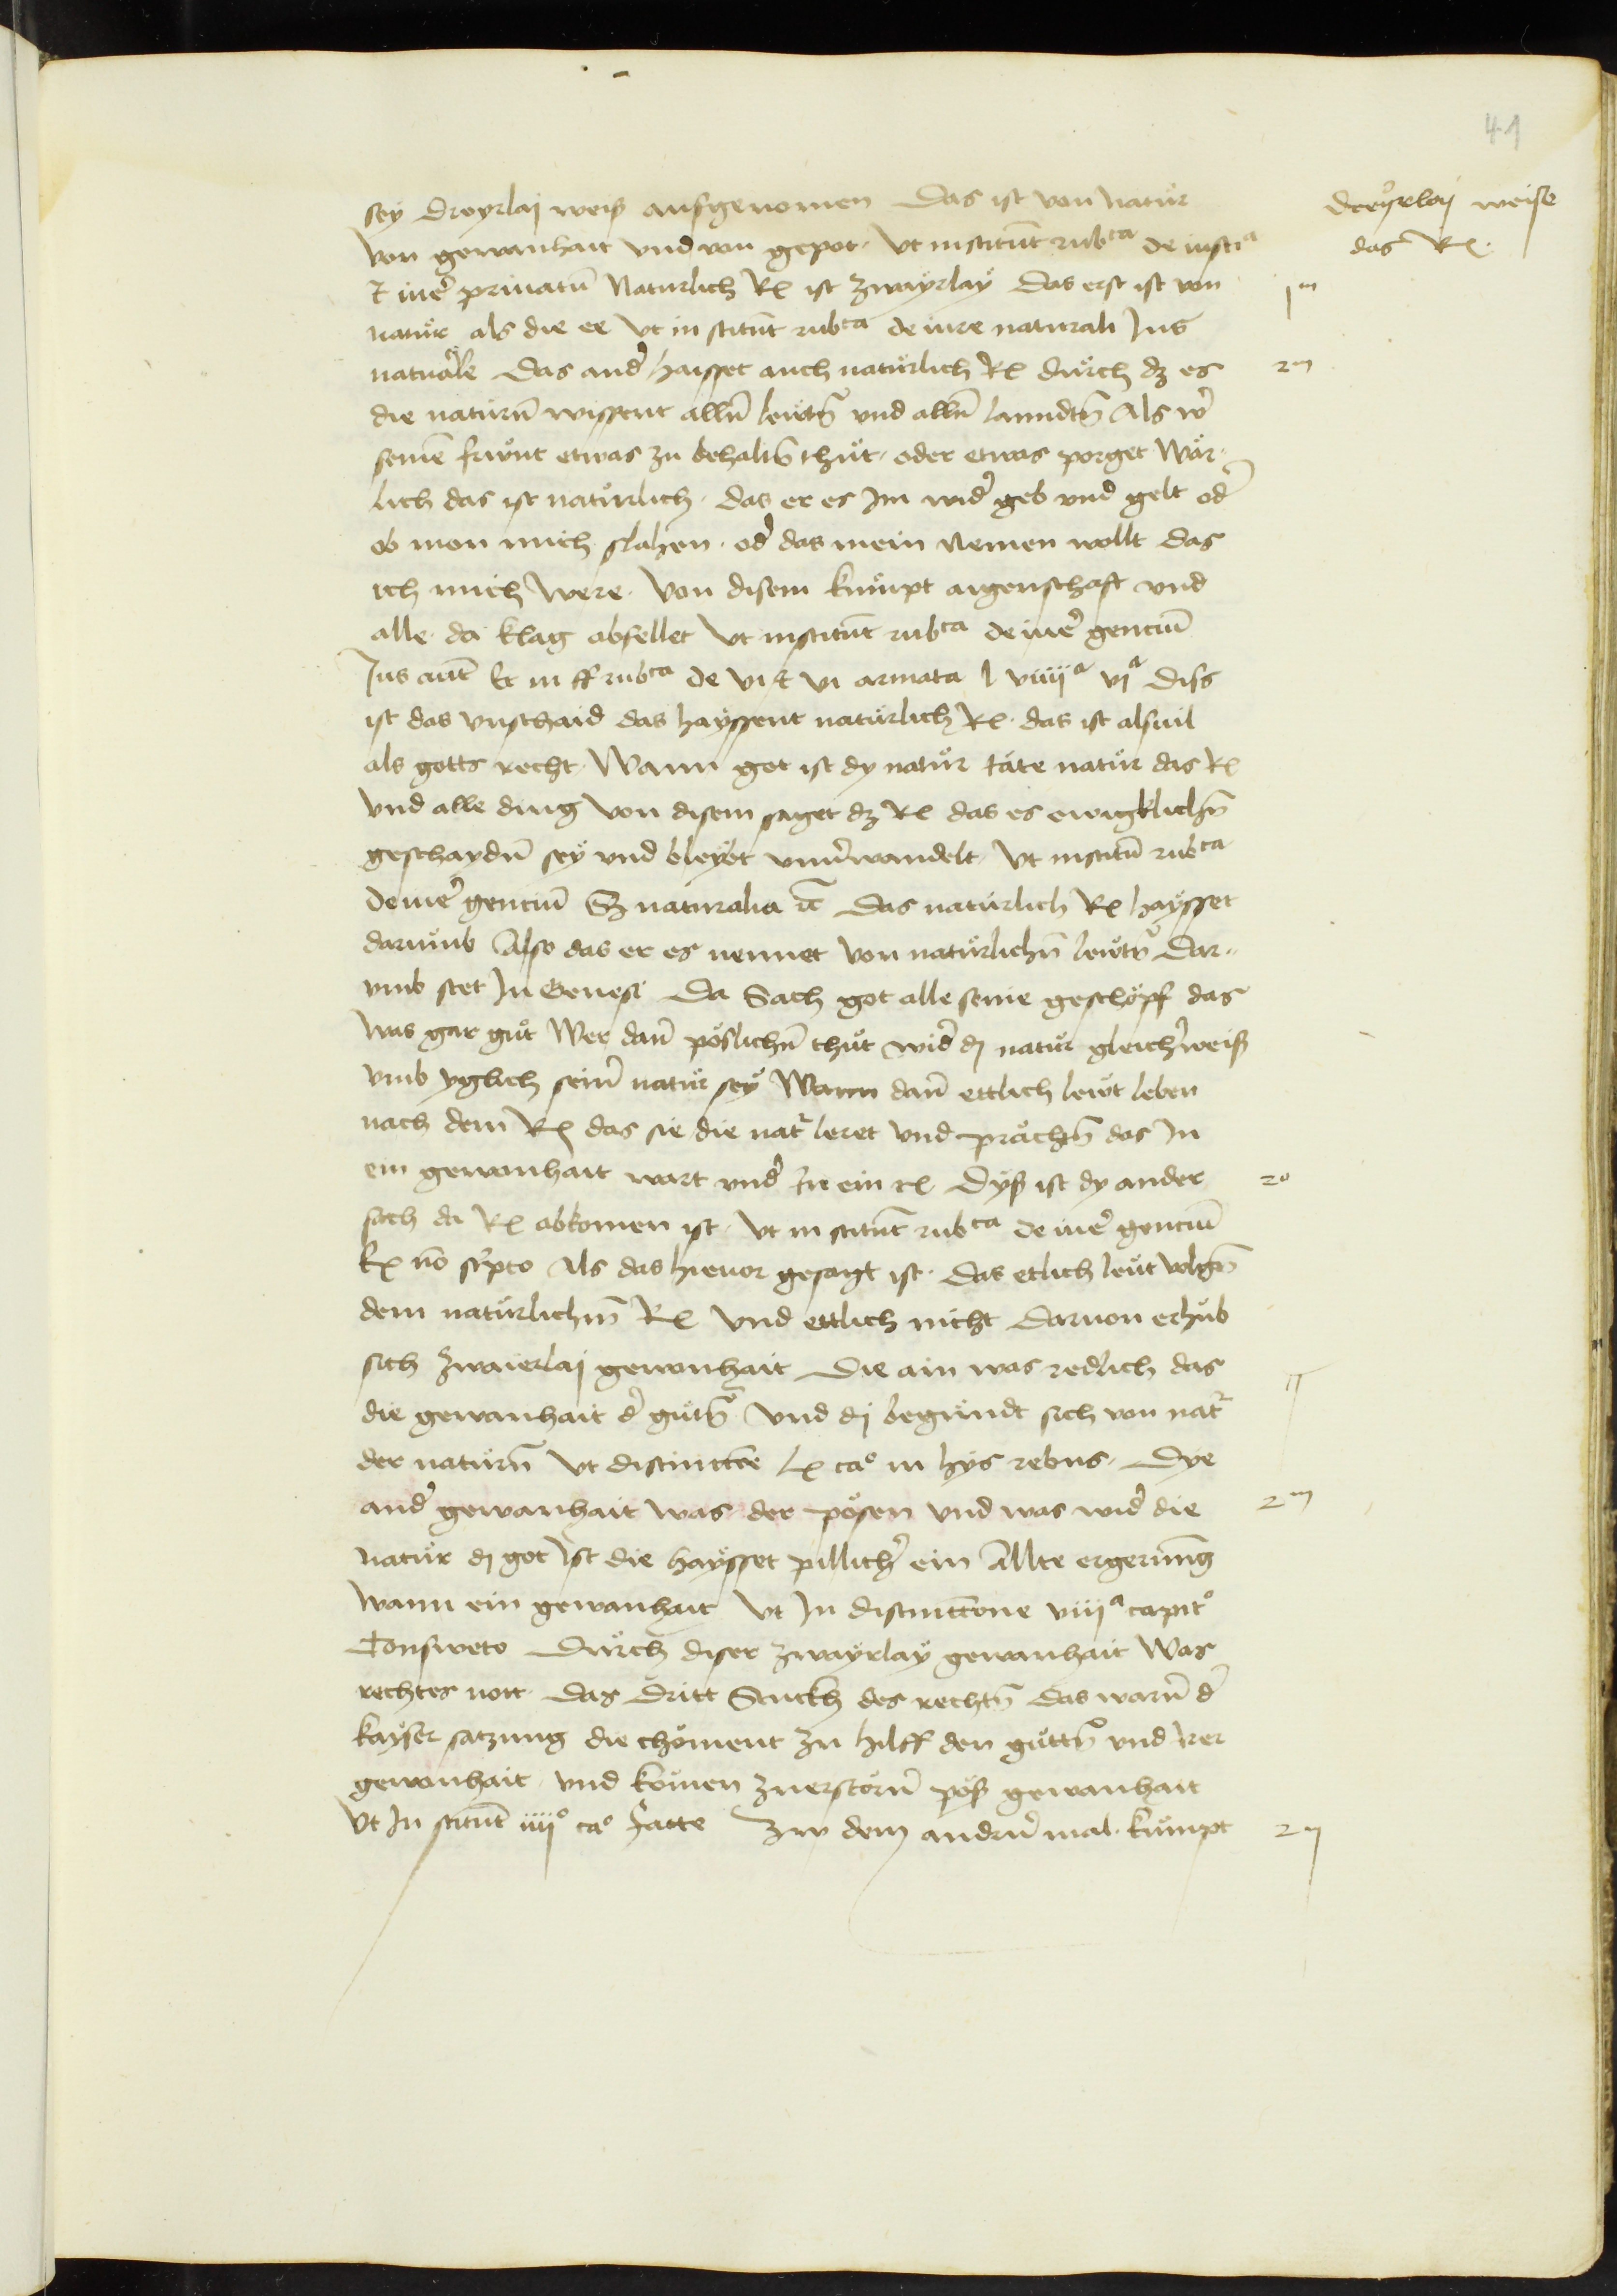 41
sey dreyrlaj weiß ausgenomen Das ist von natur
dreyrlaj weise
das Rͨ
von gewanhait vnd von gepot. Vt institut̄ rubᶜᵃ de iustiᵃ
⁊ iur̉ priuatū Naturlich Rͨ ist zwayrlay Das erst ist von
1ᵐ
natur als die ee Vt in stitut̄ rubᶜᵃ de iure naturali Jus
naturale Das ander̉ haisset auch natürlich Rͨ durch dz es
2ᵐ
die naturn̄ wissent alln̄ lewtn̄ vnd alln̄ lanndtn̄ Als wer̉
seinē frwnt etwas zu behaltn̄ thut. oder etwas porget Wär-
lich das ist naturlich. das er es Jm wider̉ geb vnd gelt oder̉
ob mon mich slahen. oder̉ das mein nemen wollt das
ich mich were. Von disem kumpt aigenschaft vnd
alle. da klag abfellet Vt institut̄ rubᶜᵃ de iur̉ genciū
Jus aut̄ Et in ff rubᶜᵃ de vi et vi armata l viiijᵃ vjᵃ Diss
ist das vnschaid das hayssent natürlich Rͨ. das ist alsuil
als gotts recht. Wann got ist dy natur täte natur das Rͨ
vnd alle ding Von disem saget dz Rͨ das es ewigklichn̄
geschaydn̄ sey vnd bleybt vnuer̉wandelt. Vt institū rubᶜᵃ
de iur̉ genciū Sz naturalia ⁊c̄ Das natürlich Rͨ haysset
darumb Also das er es nennet von natürlichn̄ lewtn̄ Dar-
vmb stet Jn Genesi Da Sach got alle seine geschöpf das
was gar gut Wer dan̄ pöslichn̄ thut wider̉ dj natur gleicher̉weiß
vmb yglich seiner̉ natur sey Wann dan̄ ettlich lewt leben
nach dem Rͨ das sie die nat̉ leret vnd prächn̄ das Jn
ein gewonhait wart vnd Jn ein rͨ Dyß ist dy ander
2º
sach da Rͨ abkomen ist. Vt in stitut̄ rubᶜᵃ de iur̉ genciū
Ex nō scripto Als das hieuor gesagt ist. Das etlich leut volgn̄
dem natürlichn̄ Rͨ Vnd ettlich nicht Daruon erhub
sich zwaierlaj gewonhait Die ain was redlich das
die gewanhait der̉ gutn̄ Vnd dj begründt sich von nat̉
der naturn̄ Vt distinctōe Lͨ caº in hys rebus. Dye
ander̉ gewanhait was der pösen vnd was wider̉ die
2ᵐ
natur dj got ist die haysset pillicher̉ ein Allte ergerung
wann ein gewanhait Vt Jn distinctione viijᵃ capitº
Consweto Durch diser zwayrlay gewanhait Was
rechtes nott. Das dritt Stuckh des rechtn̄ das warn̄ der̉
kayser satzung die chöment zu hilff den guttn̄ vnd irer
gewonhait. vnd komen zuerstörn̄ pöß gewanhait
Vt Jn stitut̄ iiijº caº Jatte Zw dem andrn̄ mal. kumpt